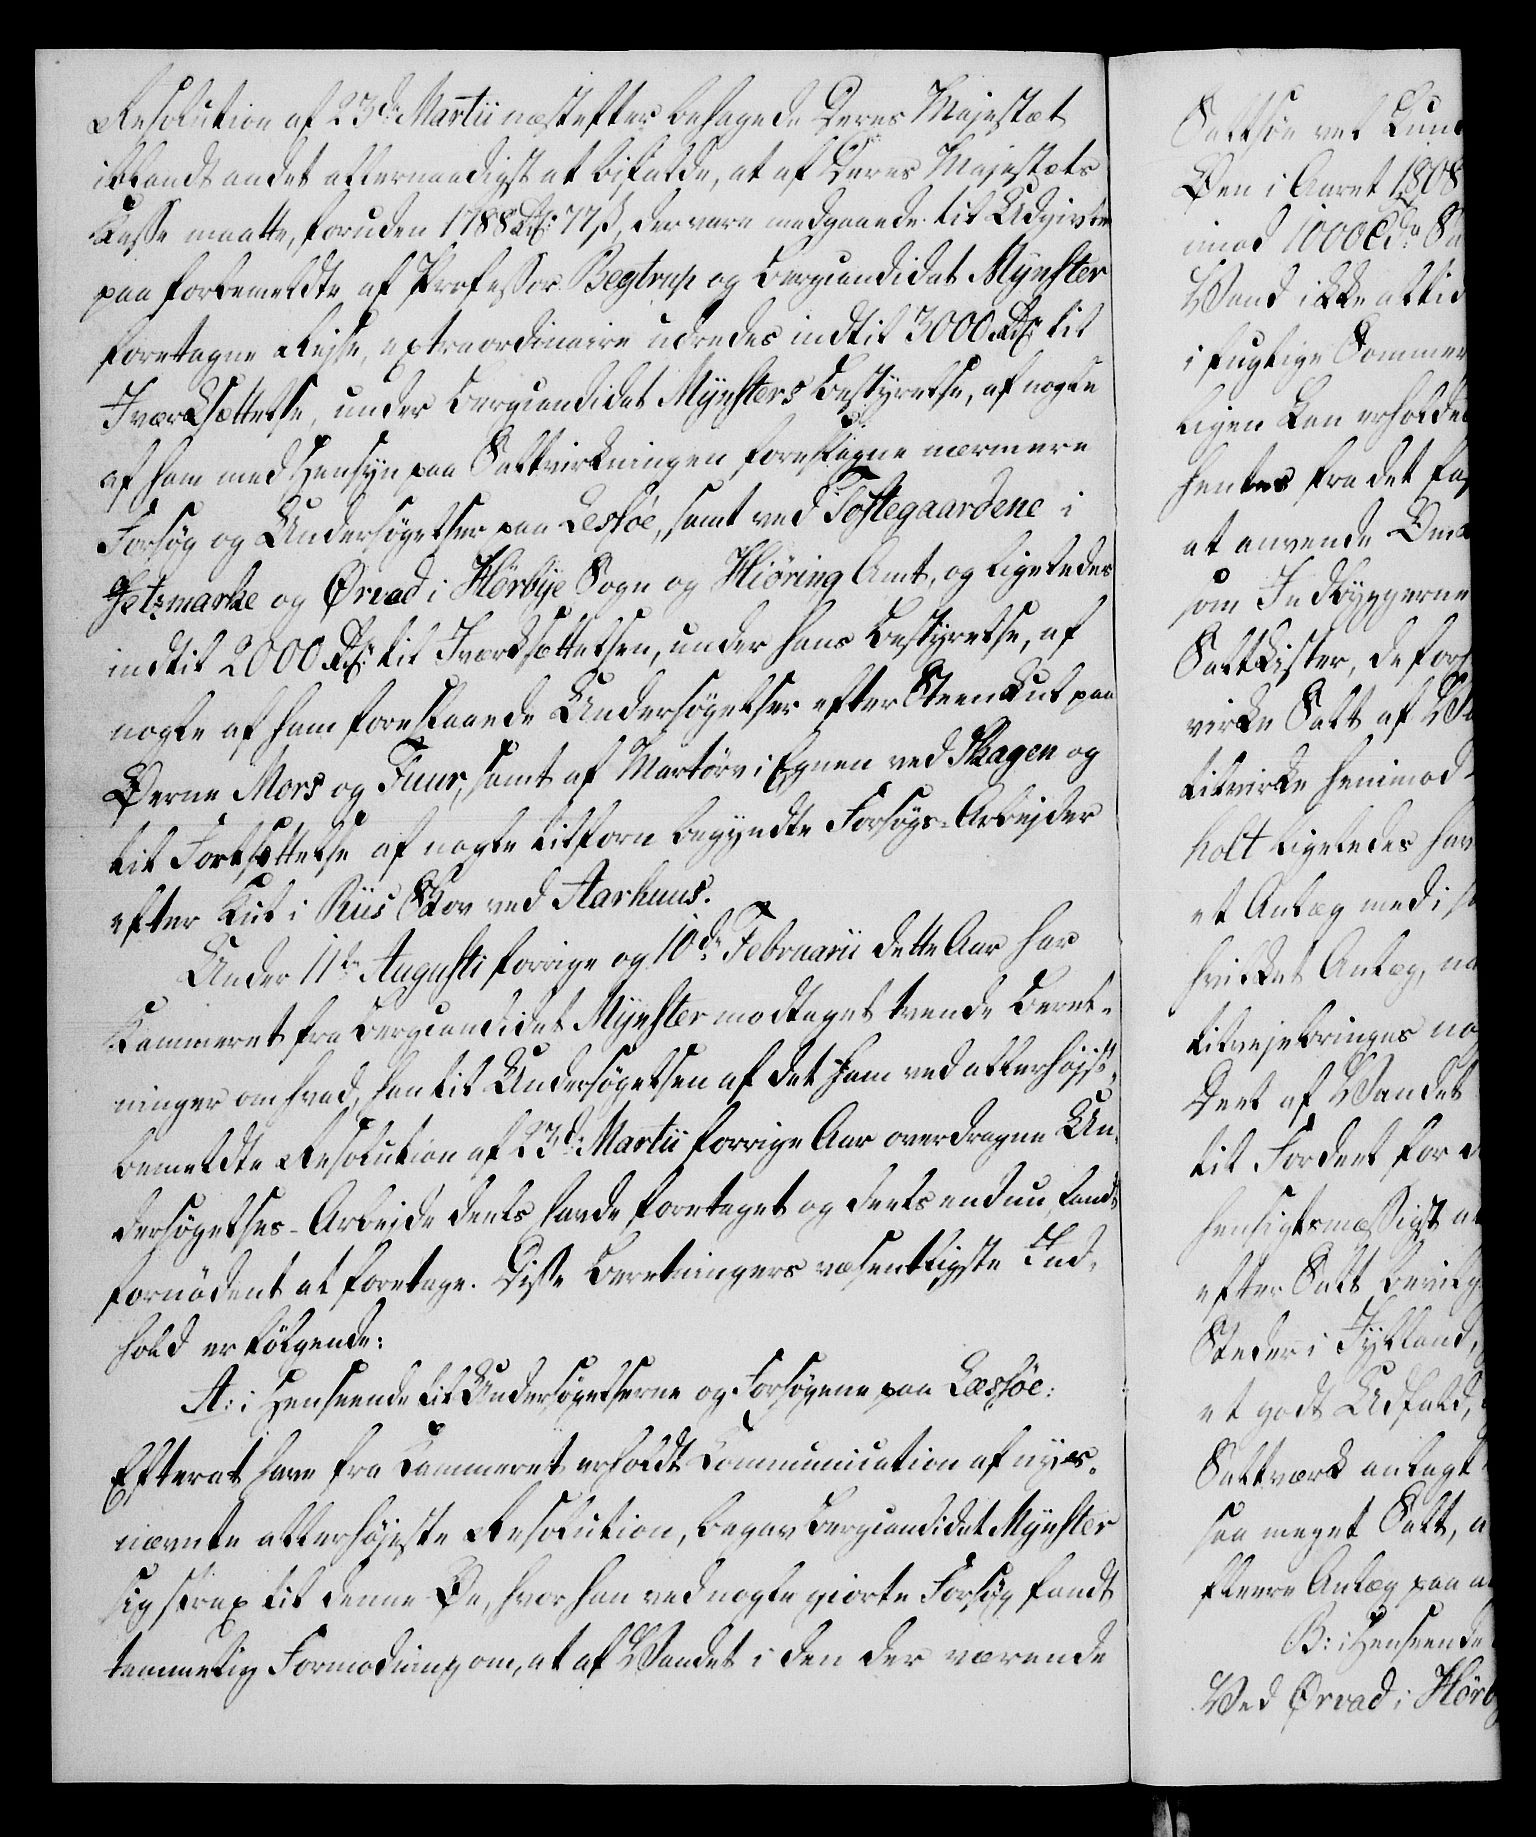 Resolution af 23de Martii næstefter behagede Deres Majestæt
iblandt andet allernaadigst at bifalde, at af Deres Majestæts
Kasse maatte, foruden 1788 Rd: 77 ß, der vare medgaaede til Udgivter
paa forbemeldte af Professor Begtrup og Bergcandidat Mÿnster
foretagne Reise, extraordinaire udredes indtil 3000 Rd: til
Iværksættelse, under Bergcandidat Mÿnsters Bestyrelse, af nogle
af ham med Hensyn paa Saltvirkningen foreslagne nærmere
Forsøg og Undersøgelser paa Lessöe, samt ved Tostegaardene i
Jetzmarke og Ørvad i Hörbÿe Sogn og Hiöring Amt, og ligeledes
indtil 2000 Rd: til Iværksættelsen, under hans Bestyrelse, af
nogle af ham foreslaaede Undersøgelser efter Steenkul paa
Øerne Mors og Fuur, samt af Martörv i Egnen ved Skagen og
til Fortsættelse af nogle tilforn begyndte Forsøgs-Arbejder
efter Kul i Riis Skov ved Aarhuus.
Under 11te Augusti forrige og 10de Februarii dette Aar har
Kammeret fra Bergcandidat Mÿnster modtaget tvende Beret-
ninger om hvad, han til Undersøgelsen af det ham ved allerhøjst-
bemeldte Resolution af 23de Martii forrige Aar overdragne Un-
dersøgelses-Arbeide deels havde foretaget og deels endnu fandt
fornödent at foretage. Disse Beretningers væsentligste Ind-
hold er følgende:
A: i Henseende til Undersøgelserne og Forsøgene paa Læssöe:
Efterat have fra Kammeret erholdt Communication af nys-
nævnte allerhøjeste Resolution, begav Bergcandidat Mÿnster
sig strax til denne Øe, hvor han ved nogle giorte Forsøg fandt
temmelig Formodning om, at af Vandet i den der værende
Saltsöe ved
Øen i Aaret 1808
imod 1000
Vand ikke altid
i fugtige Sommer
ligen kan erholde
hentes fra det
at anvende
som Indbyggerne
Saltkister, de
virke Salt af
tilvirke henimod
holt ligeledes
et Anlæg med
hvilket Anlæg,
tilvejebringes
Deel af Vandet
til Fordeel for
hensigtsmæssigst
efter Salt
Steder i Jÿlland,
et godt Udfald,
Saltværk anlagt
saa meget Salt,
fleere Anlæg paa
B: i Henseende
Ved Ørvad i Hörb